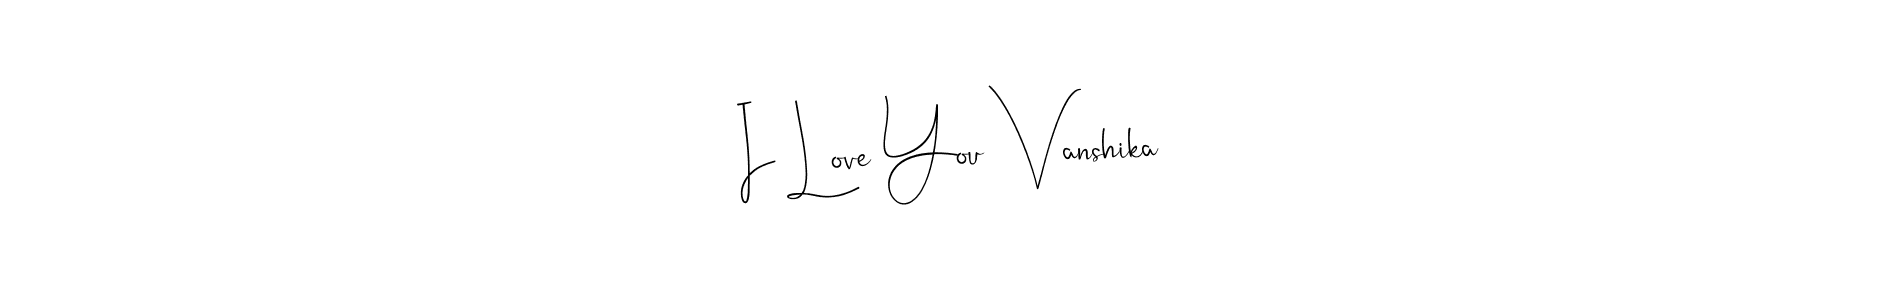 I Love You Vanshika